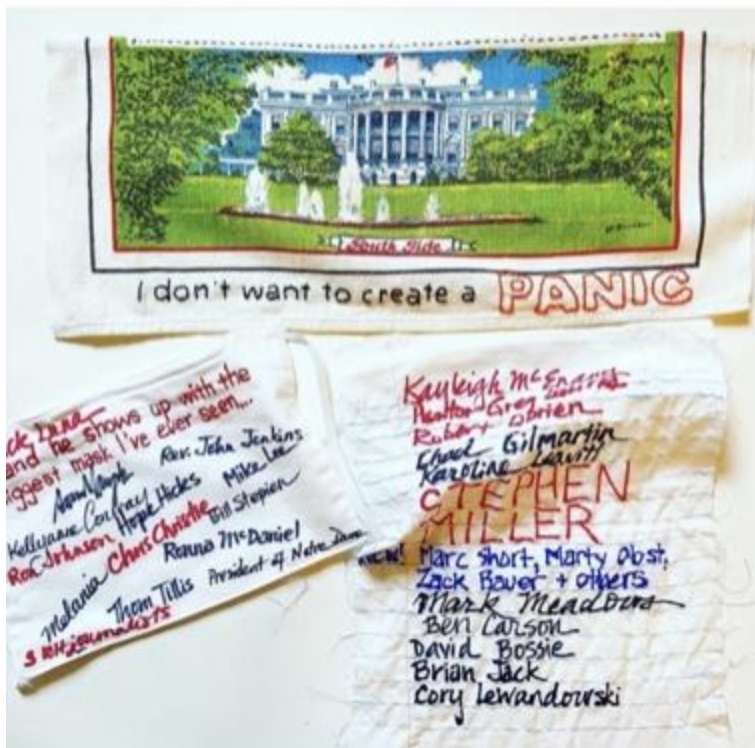 South Side
I don't want to create a PANIC
and he shows up with the
biggest mask I've ever seen...
Rev. John Jenkins
Kellyanne Conway Hope Hicks Mike Lee
Ron Johnson Chris Christie Bill Stepien
Melania Ronna McDaniel
Thom Tillis President of Notre Dame
3 WH journalists
Kayleigh
Greg
Robert O'Brien
Chad Gilmartin
Karoline Leavitt
STEPHEN
MILLER
New! Marc Short, Marty Obst,
Zack Bauer + others
Mark Meadows
Ben Carson
David Bossie
Brian Jack
Cory Lewandowski